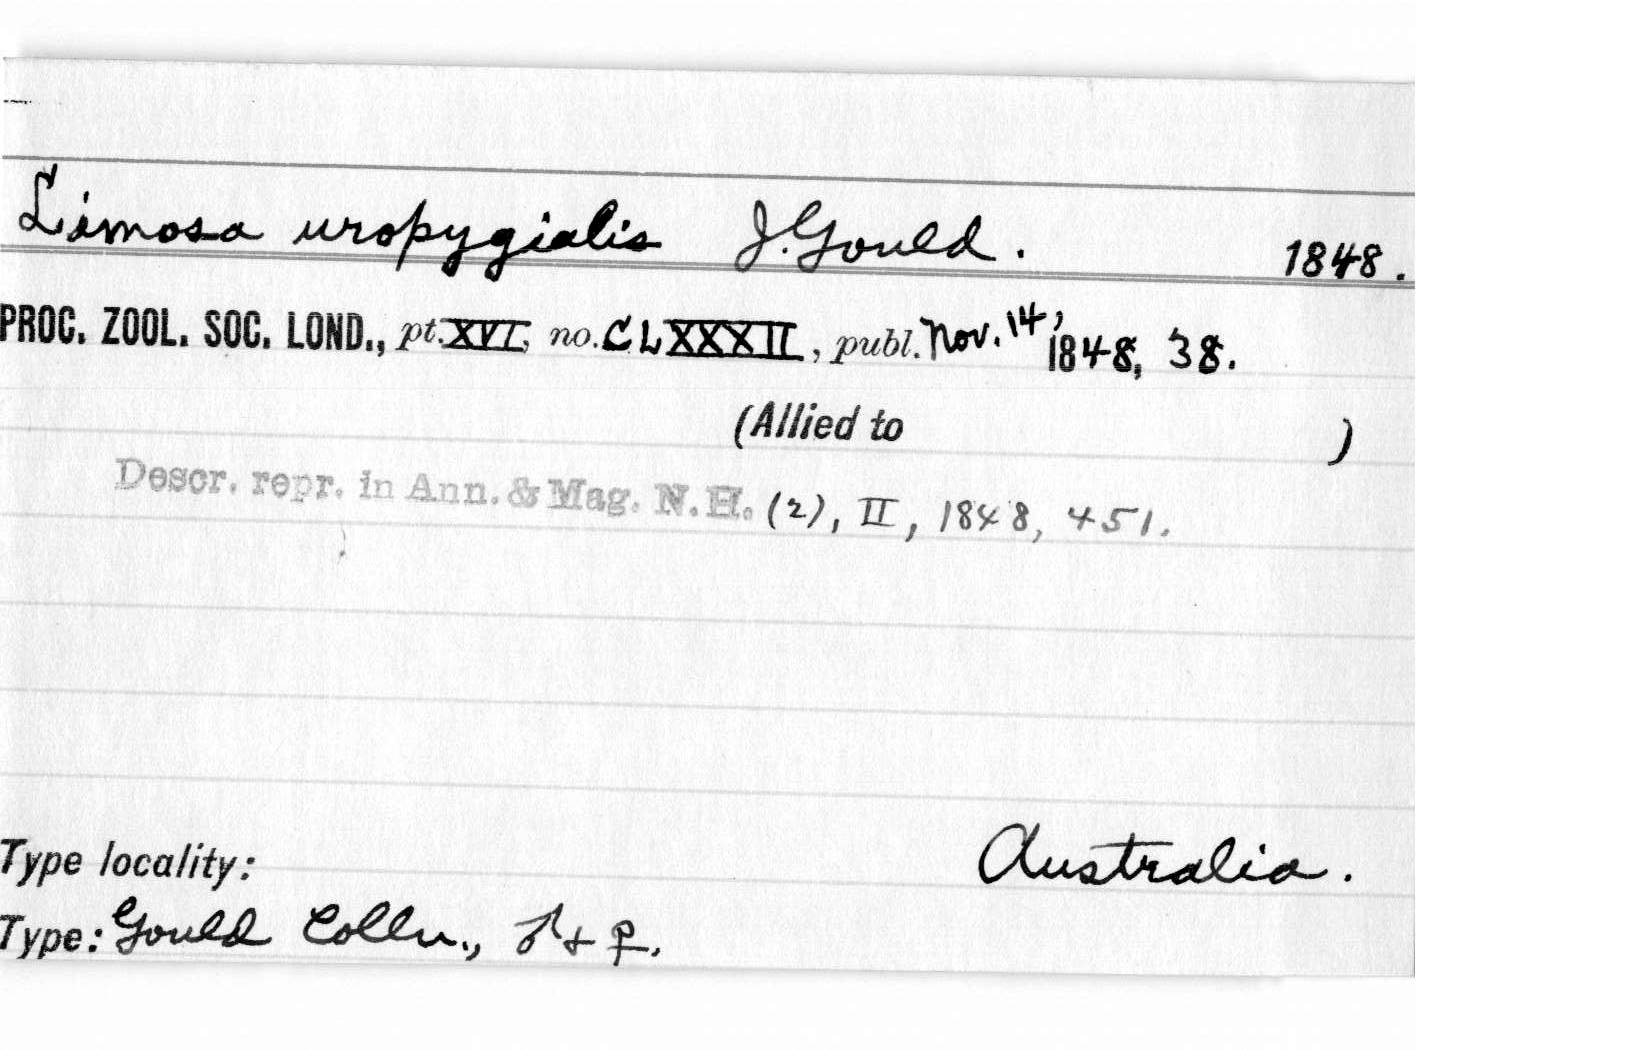 Limosa uropygialis J. Gould. 1848.
PROC. ZOOL. SOC. LOND., pt. XVI, no. CLXXXII, publ. Nov. 14, 1848, 38.
(Allied to )
Descr. repr. in Ann. & Mag. N.H. (2), II, 1848, 451.
Type locality: Australia.
Type: Gould Colln., ♂ + ♀.